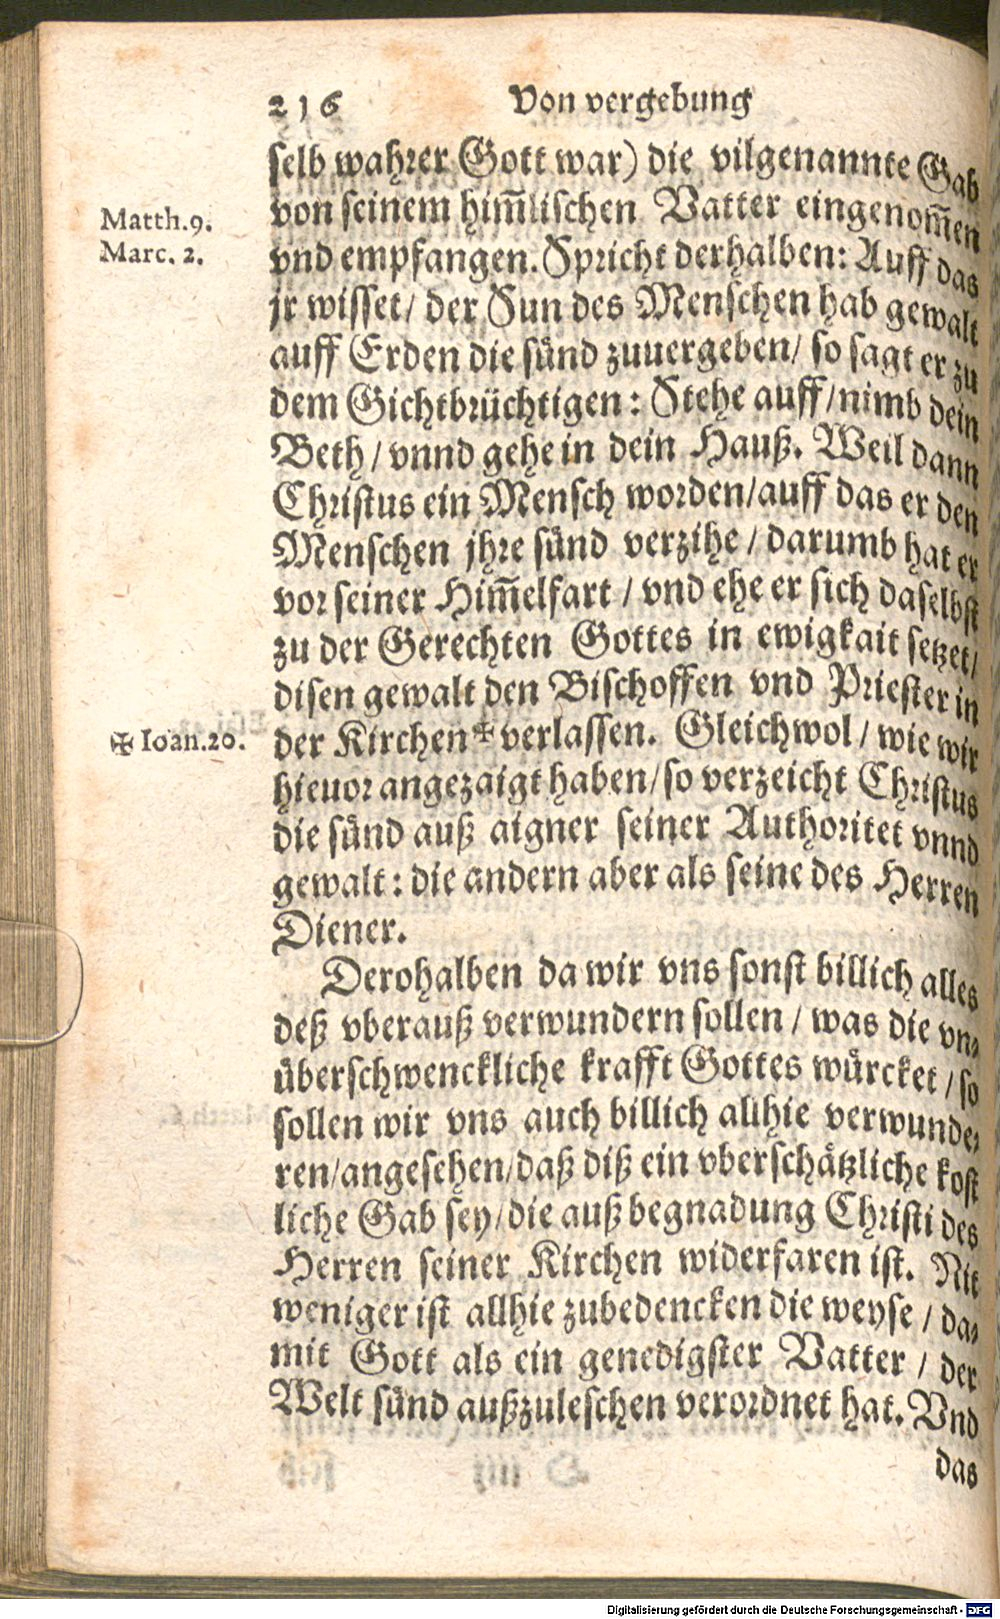 216 Von vergebung
selb wahrer Gott war) die vilgenannte Gab
Matth.9.
Marc. 2.
von seinem him̃lischen Vatter eingenom̃en
vnd empfangen. Spricht derhalben: Auff das
jr wisset/ der Sun des Menschen hab gewalt
auff Erden die sünd zuuergeben/ so sagt er zu
dem Gichtbrüchtigen: Stehe auff/ nimb dein
Beth/ vnnd gehe in dein Hauß. Weil dann
Christus ein Mensch worden/ auff das er den
Menschen jhre sünd verzihe/ darumb hat er
vor seiner Him̃elfart/ vnd ehe er sich daselbst
zu der Gerechten Gottes in ewigkait setzet/
disen gewalt den Bischoffen vnd Priester in
✠ Ioan.20.
der Kirchen ✠ verlassen. Gleichwol/ wie wir
hieuor angezaigt haben/ so verzeicht Christus
die sünd auß aigner seiner Authoritet vnnd
gewalt: die andern aber als seine des Herren
Diener.
Derohalben da wir vns sonst billich alles
deß vberauß verwundern sollen/ was die vn⸗
überschwenckliche krafft Gottes würcket/ so
sollen wir vns auch billich allhie verwunde⸗
ren/ angesehen/ daß diß ein vberschätzliche kost
liche Gab sey/ die auß begnadung Christi des
Herren seiner Kirchen widerfaren ist. Nit
weniger ist allhie zubedencken die weyse/ da⸗
mit Gott als ein genedigster Vatter/ der
Welt sünd außzuleschen verordnet hat. Vnd
das
Digitalisierung gefördert durch die Deutsche Forschungsgemeinschaft - DFG